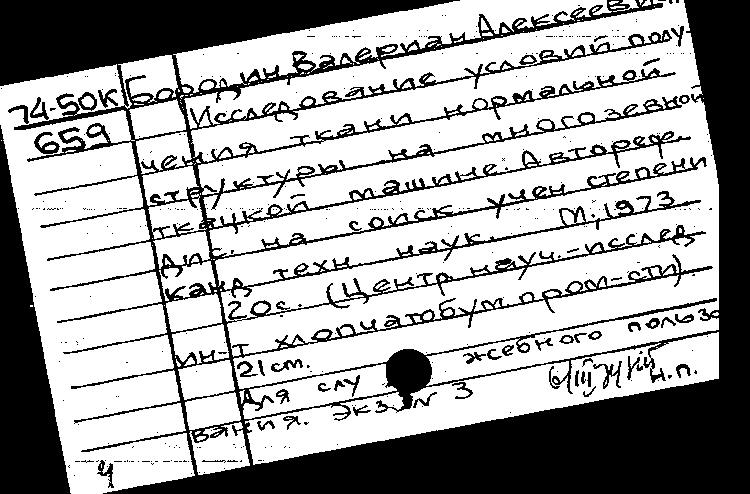 74-50К Бородин, Валериан Алексеевич
659 Исследование условий полу-
чения ткани нормальной
структуры на многозевной
ткацкой машине. Автореф.
дис. на соиск. учен степени
канд техн. наук. М., 1973.
20с. (Центр науч.-исслед.
ин-т хлопчатобум пром-сти).
21 см.
Для служебного пользо
вания. Экз. № 3
н.п.
4